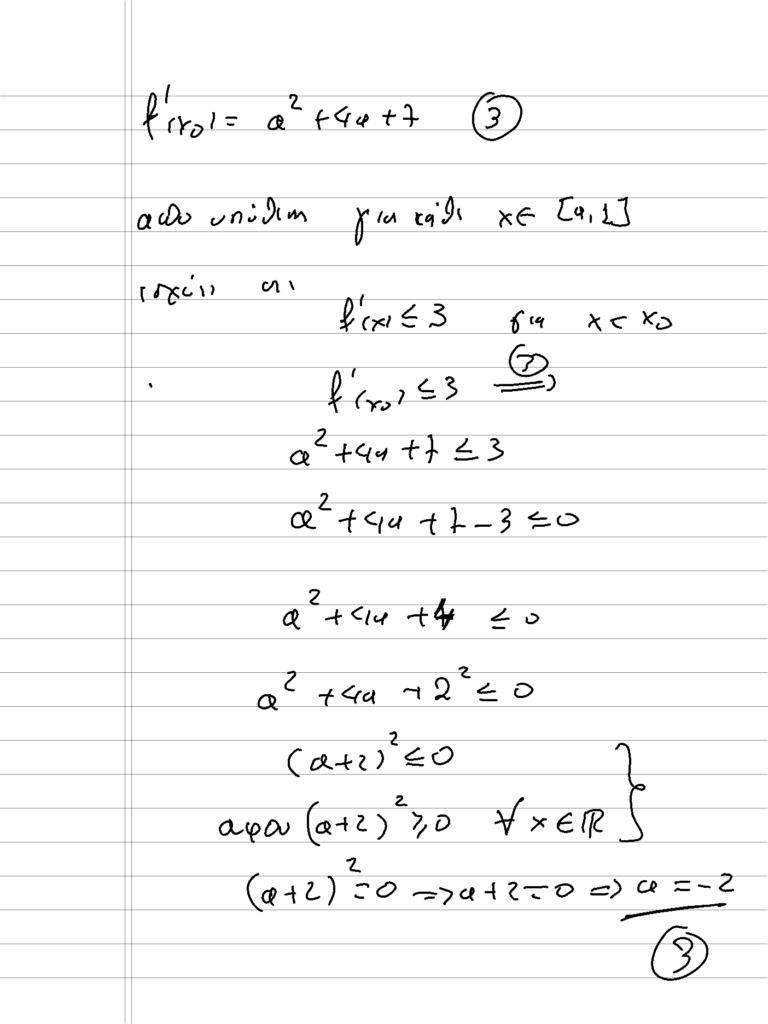 f'(x₀) = a² + 4a + 7 ③
από υπόθεση για κάθε x ∈ [a, 1]
ισχύει οτι
f'(x) ≤ 3 για x = x₀
f'(x₀) ≤ 3 ③⟹
a² + 4a + 7 ≤ 3
a² + 4a + 7 - 3 ≤ 0
a² + 4a + 4 ≤ 0
a² + 4a + 2² ≤ 0
(a+2)² ≤ 0
αφου (a+2)² ≥ 0 ∀ x ∈ ℝ }
(a+2)² = 0 ⇒ a+2 = 0 ⇒ a = -2
③